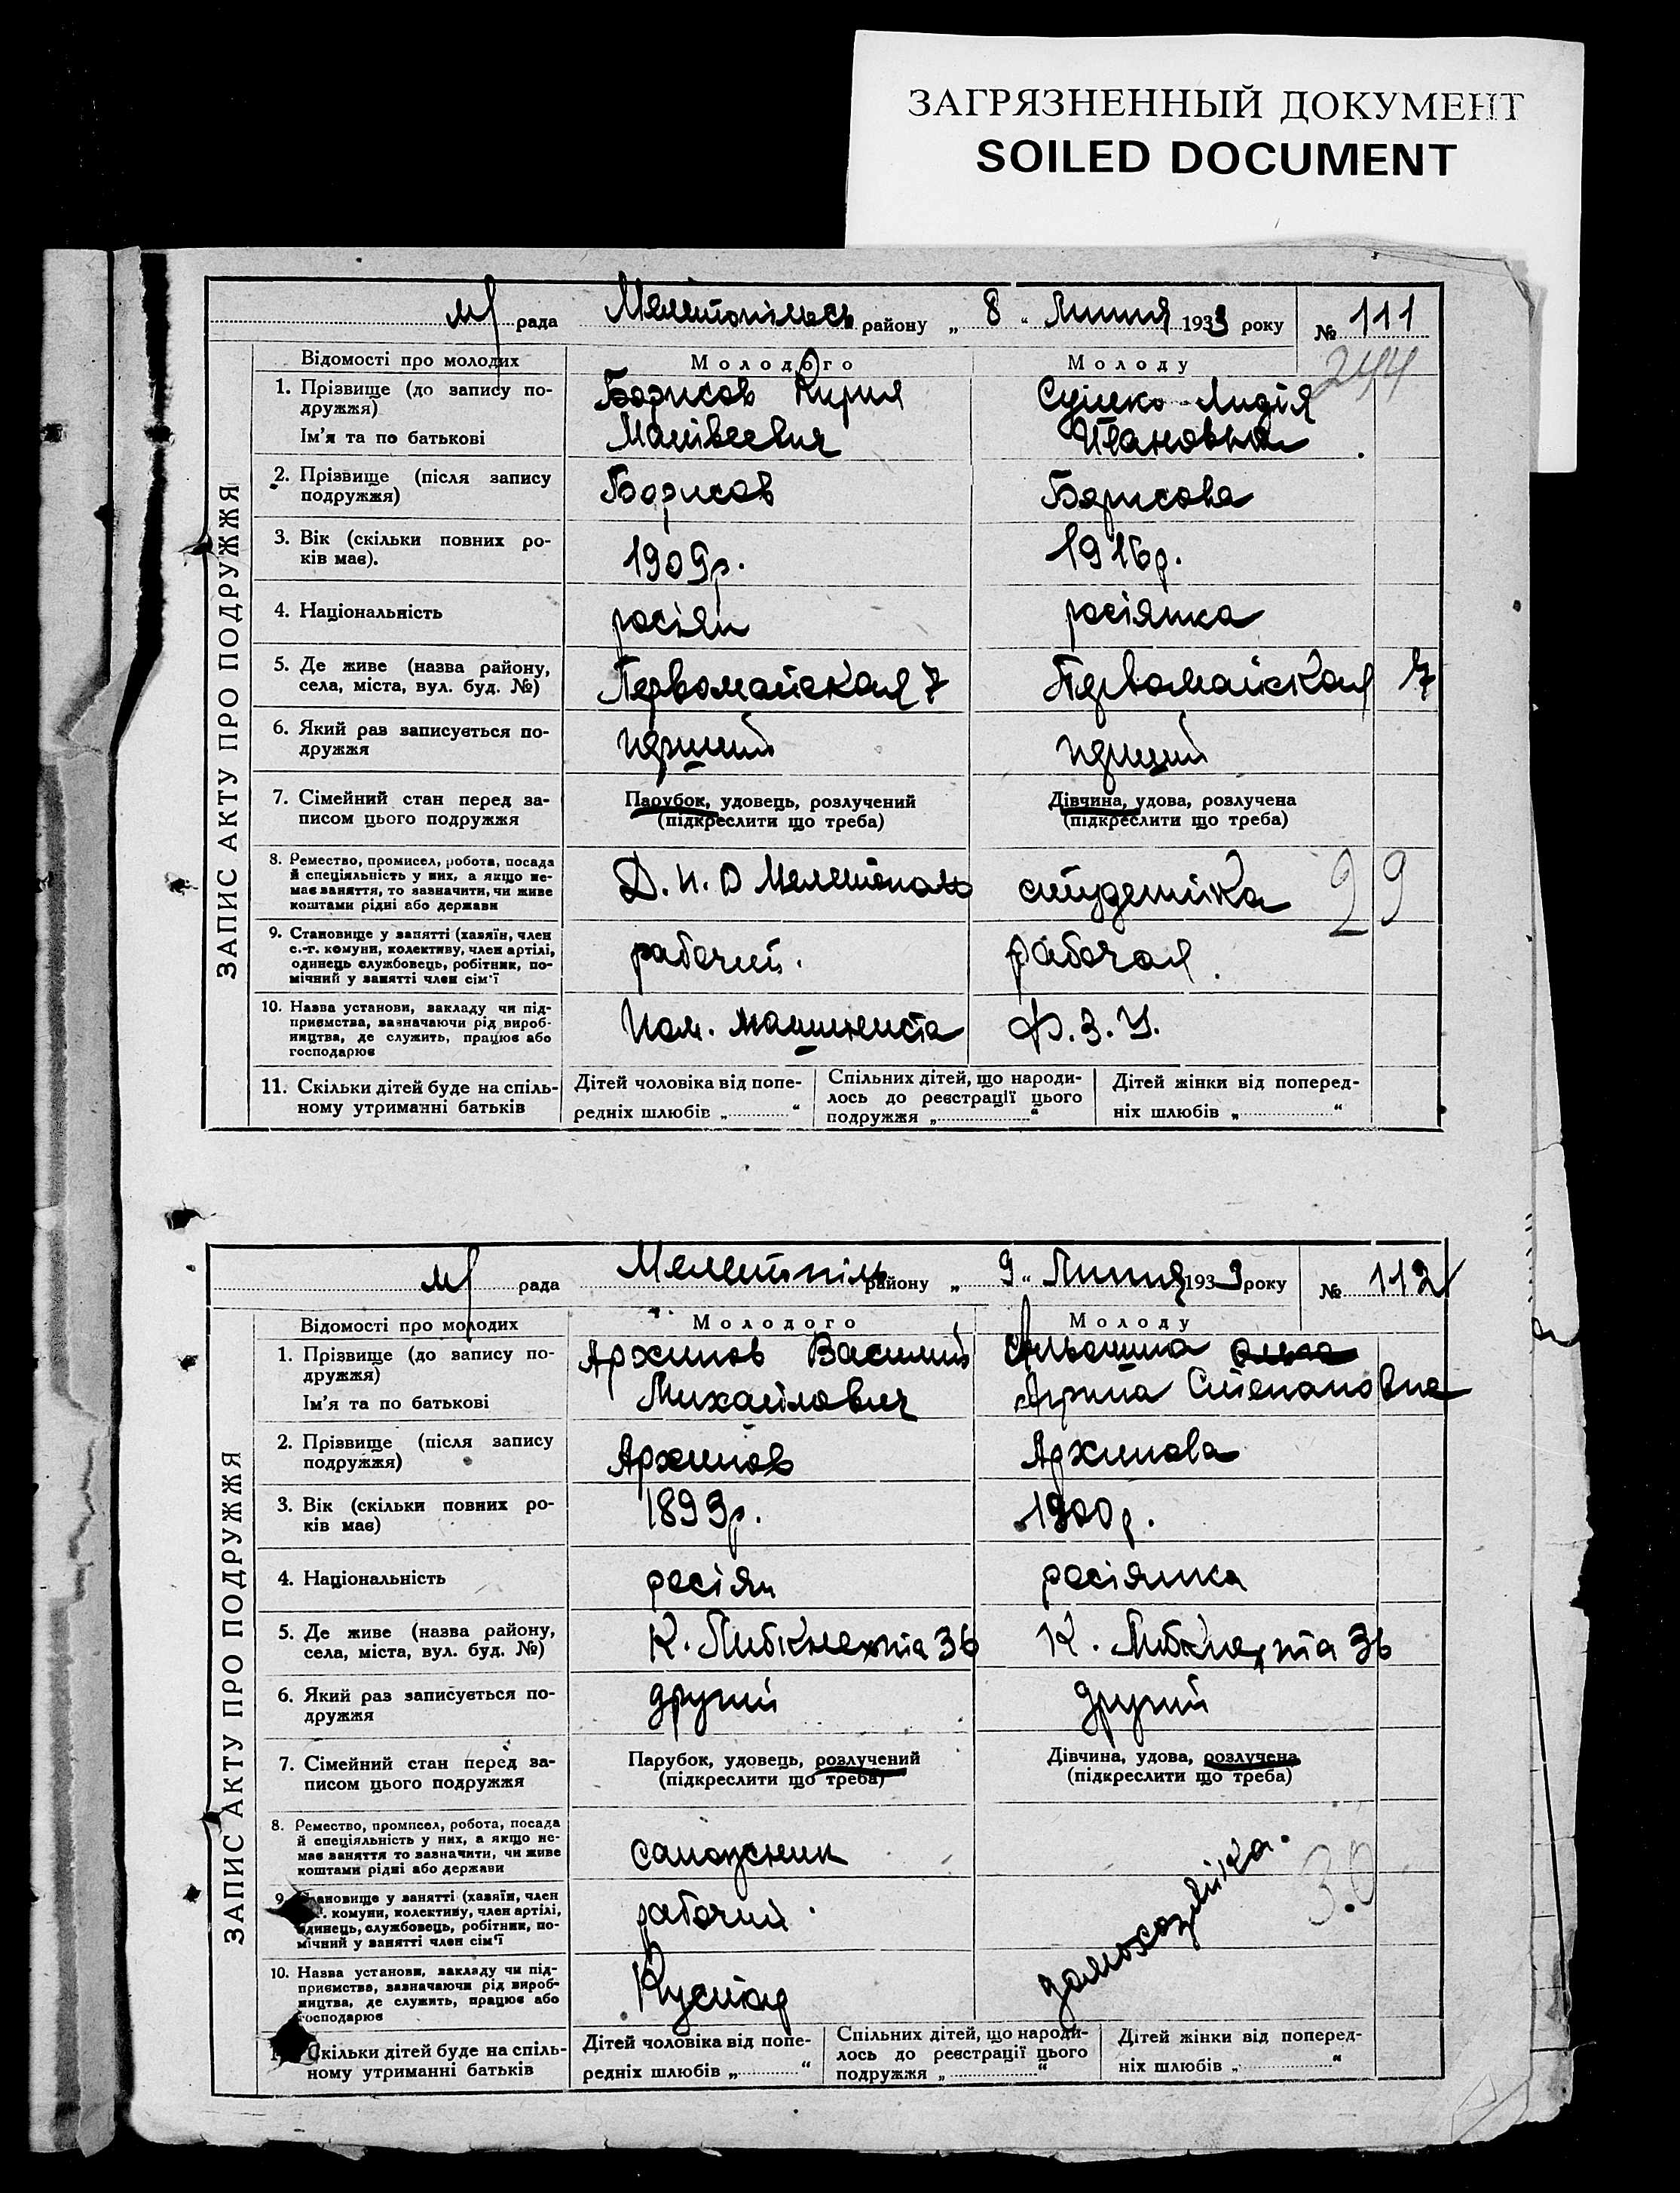 ЗАГРЯЗНЕННЫЙ ДОКУМЕНТ
SOILED DOCUMENT
ЗАПИС АКТУ ПРО ПОДРУЖЖЯ
м/ рада Мелитопільськ району „ 8 “ Липня 1933 року № 111
244
Відомості про молодих Молодого Молоду
1. Прізвище (до запису по- Борисов Кирил Сушко Лидія
дружжя)
Ім'я та по батькові Матвеевич Ивановна
2. Прізвище (після запису Борисов Борисова
подружжя)
3. Вік (скільки повних ро- 1909р. 1916р.
ків має).
4. Національність росіян росіянка
5. Де живе (назва району, Первомайская 7 Первомайская 7
села, міста, вул. буд. №)
6. Який раз записується по- перший перший
дружжя
7. Сімейний стан перед за- Парубок, удовець, розлучений Дівчина, удова, розлучена
писом цього подружжя (підкреслити що треба) (підкреслити що треба)
8. Ремество, промисел, робота, посада
й спеціяльність у них, а якщо не- Д. П. О Мелитополь студентка 29
має заняття, то зазначити, чи живе
коштами рідні або держави
9. Становище у занятті (хазяїн, член
с.-г. комуни, колективу, член артілі, рабочий. рабочая.
одинець службовець, робітник, по-
мічний у занятті член сім'ї
10. Назва установи, закладу чи під-
приємства, зазначаючи рід вироб- Пом. машиниста Ф.З.У.
ництва, де служить, працює або
господарює
11. Скільки дітей буде на спіль- Дітей чоловіка від попе- Спільних дітей, що народи- Дітей жінки від поперед-
ному утриманні батьків редніх шлюбів „ “ лось до реєстрації цього ніх шлюбів „ “
подружжя „ “
ЗАПИС АКТУ ПРО ПОДРУЖЖЯ
м/ рада Мелитопіль району „ 9 “ Липня 1933 року № 112
Відомості про молодих Молодого Молоду
1. Прізвище (до запису по- Архипов Василий Альошина
дружжя)
Ім'я та по батькові Михайлович Арина Степановна
2. Прізвище (після запису Архипов Архипова
подружжя)
3. Вік (скільки повних ро- 1899р. 1900р.
ків має)
4. Національність росіян росіянка
5. Де живе (назва району, К. Либкнехта 36 К. Либкнехта 36
села, міста, вул. буд. №)
6. Який раз записується по- другий другий
дружжя
7. Сімейний стан перед за- Парубок, удовець, розлучений Дівчина, удова, розлучена
писом цього подружжя (підкреслити що треба) (підкреслити що треба)
8. Ремество, промисел, робота, посада
й спеціяльність у них, а якщо не-
має заняття то зазначити, чи живе сапожник домохозяйка. 30
коштами рідні або держави
9. Становище у занятті (хазяїн, член
с.-г. комуни, колективу, член артілі, рабочий.
одинець, службовець, робітник, по-
мічний у занятті член сім'ї
10. Назва установи, закладу чи під-
приємства, зазначаючи рід вироб- Кустар
ництва, де служить, працює або
господарює
Скільки дітей буде на спіль- Дітей чоловіка від попе- Спільних дітей, що народи- Дітей жінки від поперед-
ному утриманні батьків редніх шлюбів „ “ лось до реєстрації цього ніх шлюбів „ “
подружжя „ “